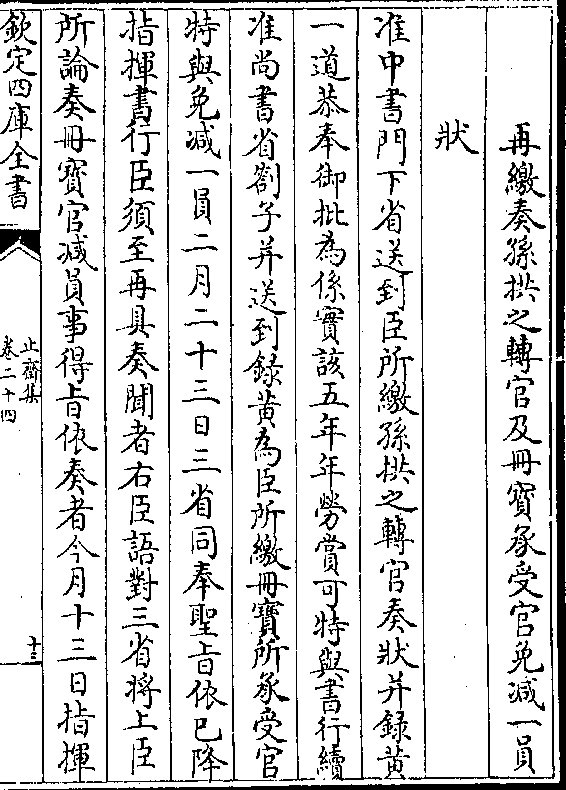 再繳奏孫拱之轉官及冊寶承受官免減一員
狀
准中書門下省送到臣所繳孫拱之轉官奏狀并錄黃
一道恭奉御批為係實該五年年勞賞可特與書行續
准尚書省劄子并送到錄黃為臣所繳冊寶所承受官
特與免減一員二月二十三日三省同奉聖旨依已降
指揮書行臣須至再具奏聞者右臣語對三省將上臣
所論奏冊寶官减員事得旨依奏者今月十三日指揮
欽定四庫全書
止齋集
卷二十四
十三